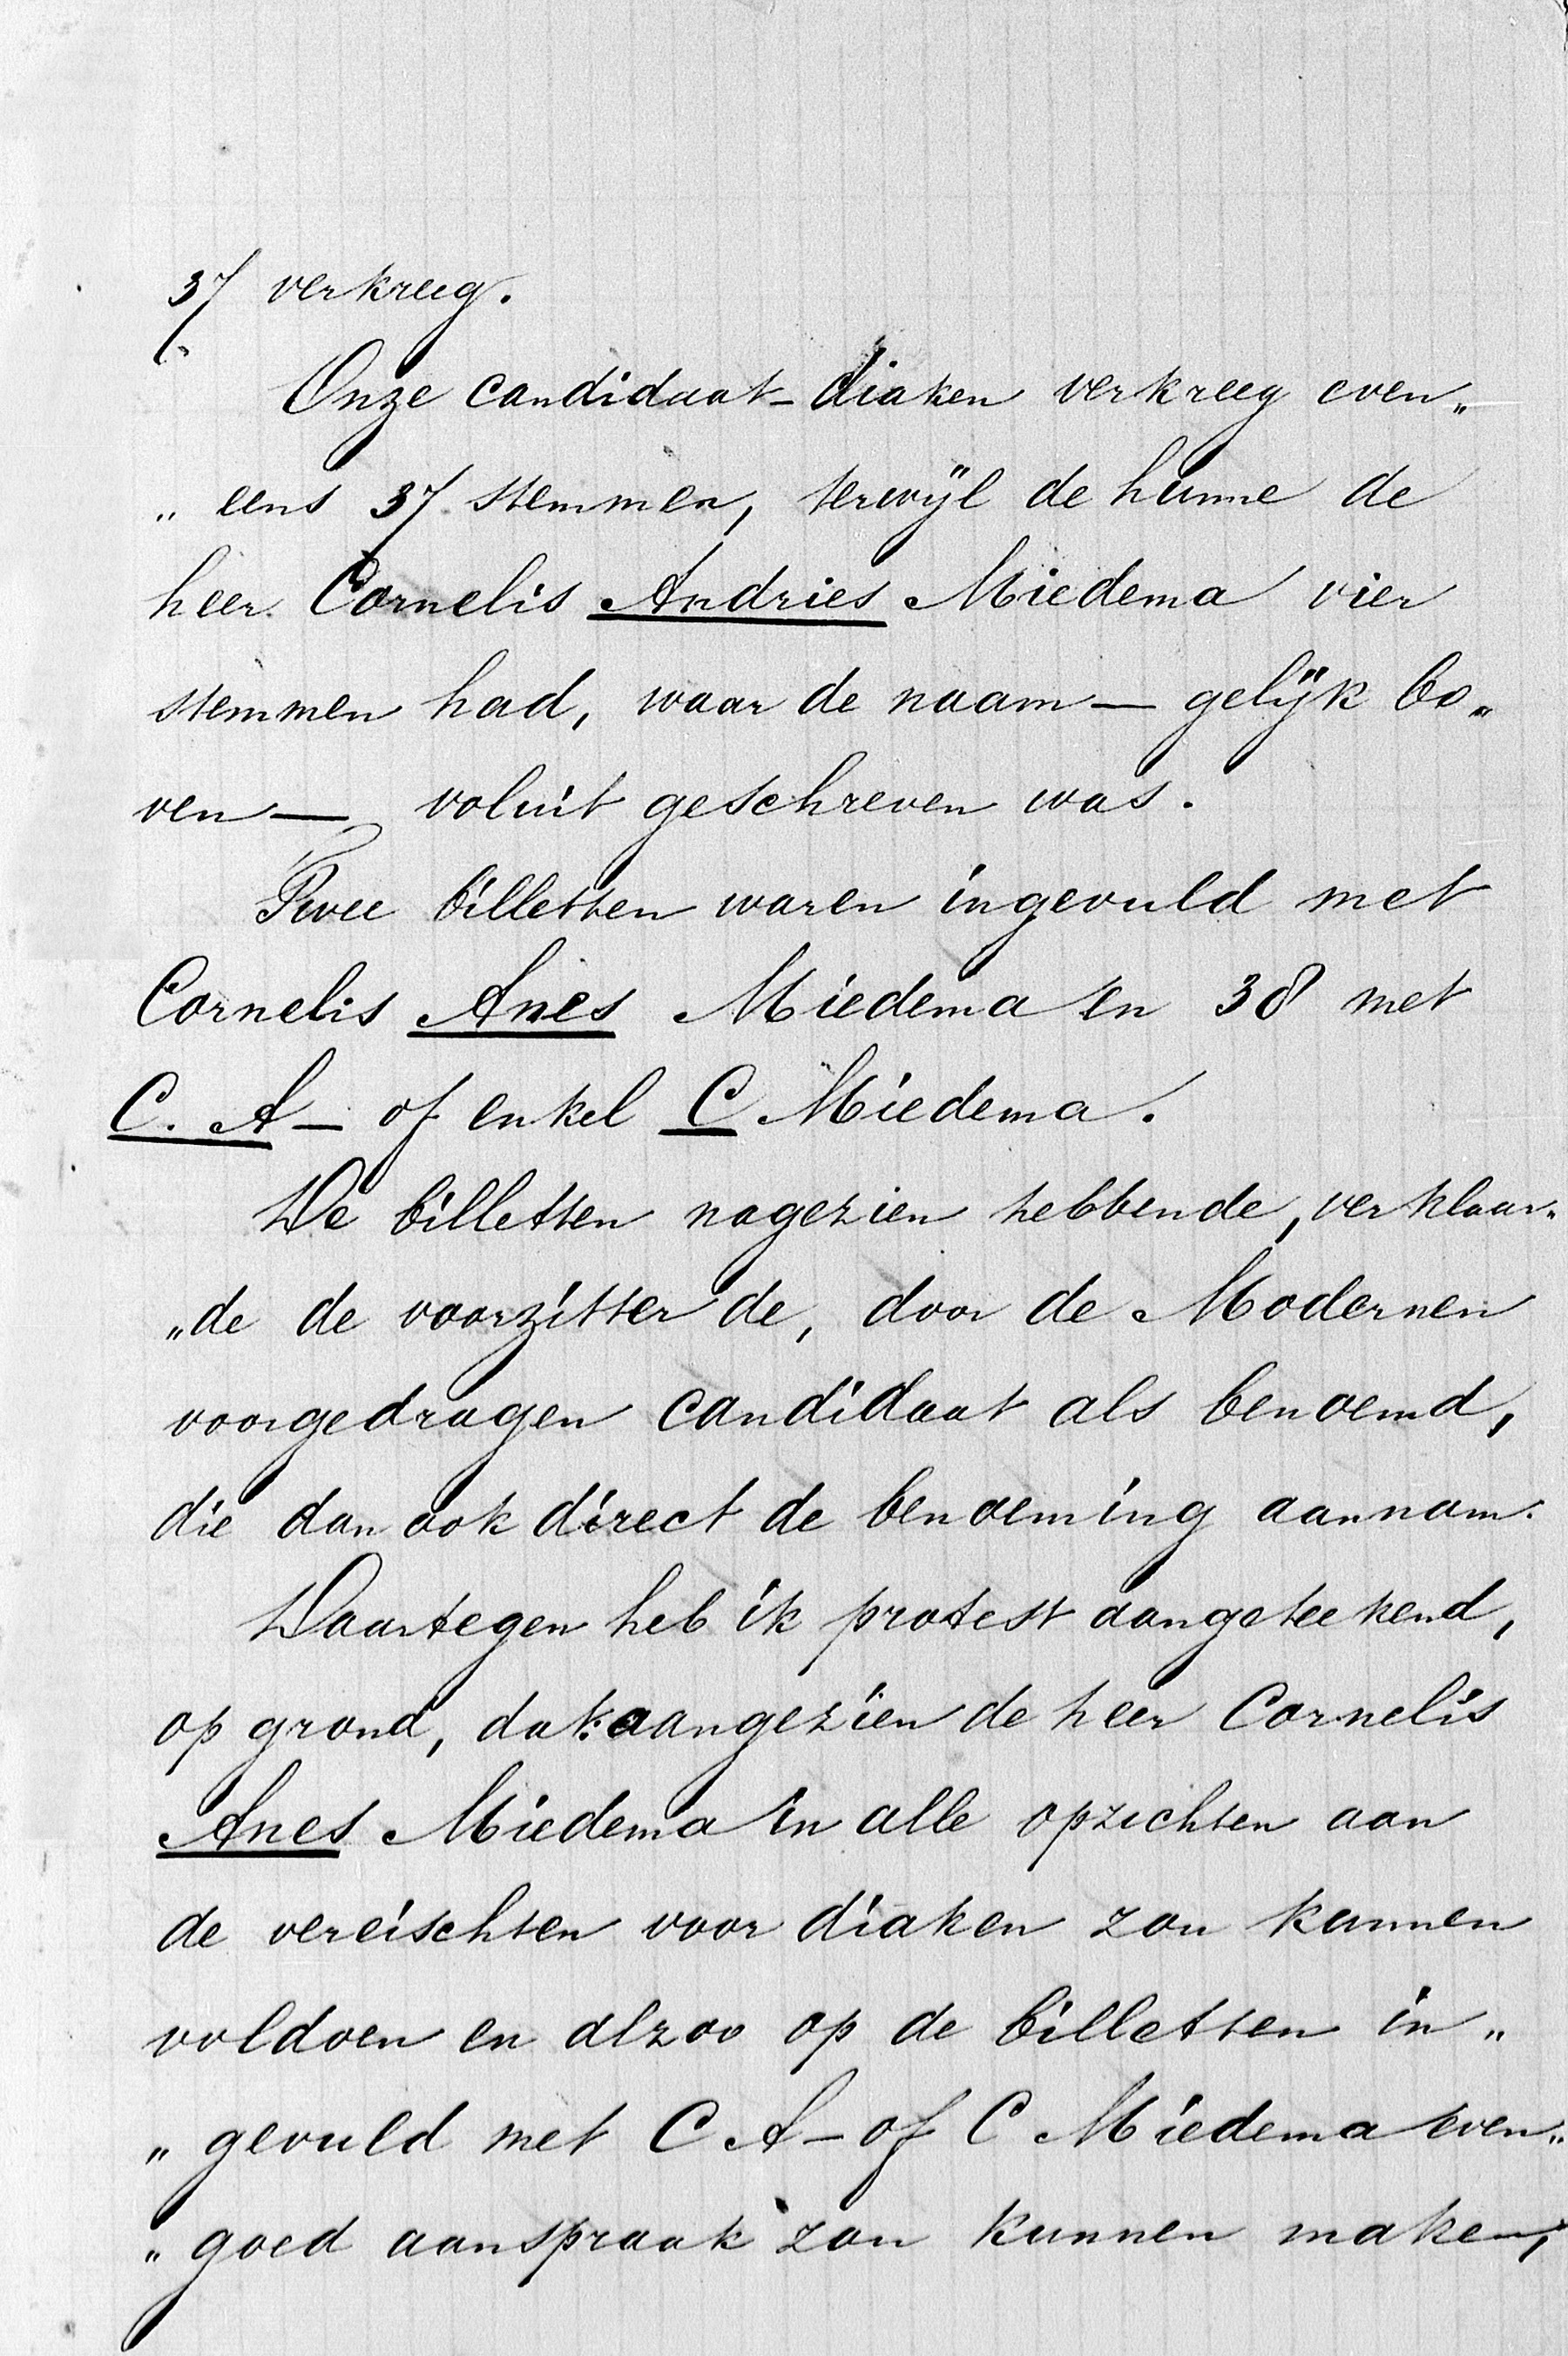 37 verkreeg.
Onze candidaat-diaken verkreeg even„
„eens 37 stemmen, terwijl de hunne de
heer Cornelis Andries Miedema vier
stemmen had, waar de naam — gelijk bo„
ven — voluit geschreven was.
Twee billetten waren ingevuld met
Cornelis Anes Miedema en 38 met
C. A — of enkel C Miedema.
De billetten nagezien hebbende, verklaar„
„de de voorzitter de, door de Modernen
voorgedragen candidaat als benoemd,
die dan ook direct de benoeming aannam.
Daartegen heb ik protest aangeteekend,
op grond, dat: aangezien de heer Cornelis
Anes Miedema in alle opzichten aan
de vereischten voor diaken zou kunnen
voldoen en alzoo op de billetten in„
„gevuld met C A — of C Miedema even„
„goed aanspraak zou kunnen maken,